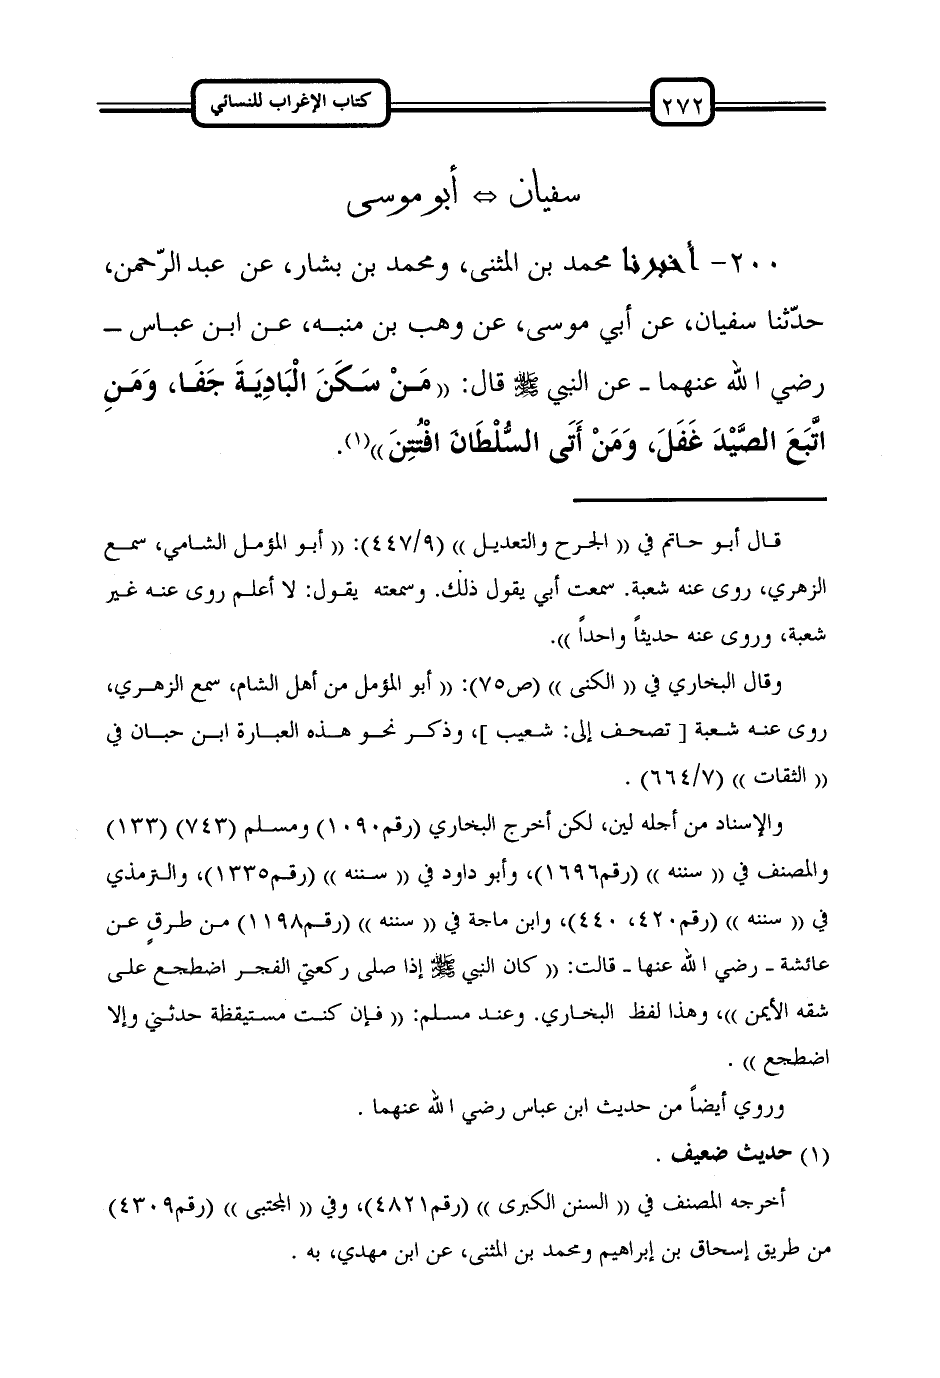 كتاب الإغراب للنسائي
٢٧٢
سفيان ⇔ أبو موسى
٢٠٠- أخبرنا محمد بن المثنى، ومحمد بن بشار، عن عبد الرّحمن،
حدّثنا سفيان، عن أبي موسى، عن وهب بن منبه، عن ابن عباس –
رضي الله عنهما - عن النبي ﷺ قال: (( مَنْ سَكَنَ الْبَادِيَةَ جَفَا، وَمَنِ
اتَّبَعَ الصَّيْدَ غَفَلَ، وَمَنْ أَتَى السُّلْطَانَ افْتُتِنَ ))(١).
قال أبو حاتم في (( الجرح والتعديل )) (٤٤٧/٩): (( أبو المؤمل الشامي، سمع
الزهري، روى عنه شعبة. سمعت أبي يقول ذلك. وسمعته يقول: لا أعلم روى عنه غير
شعبة، وروى عنه حديثاً واحداً )).
وقال البخاري في (( الكنى )) (ص٧٥): (( أبو المؤمل من أهل الشام، سمع الزهري،
روى عنه شعبة [ تصحف إلى: شعيب ]، وذكر نحو هذه العبارة ابن حبان في
(( الثقات )) (٦٦٤/٧) .
والإسناد من أجله لين، لكن أخرج البخاري (رقم١٠٩٠) ومسلم (٧٤٣) (١٣٣)
والمصنف في (( سننه )) (رقم١٦٩٦)، وأبو داود في (( سننه )) (رقم١٣٣٥)، والترمذي
في (( سننه )) (رقم٤٢٠، ٤٤٠)، وابن ماجة في (( سننه )) (رقم١١٩٨) من طرقٍ عن
عائشة - رضي الله عنها - قالت: (( كان النبي ﷺ إذا صلى ركعتي الفجر اضطجع على
شقه الأيمن ))، وهذا لفظ البخاري. وعند مسلم: (( فإن كنت مستيقظة حدثني وإلا
اضطجع )) .
وروي أيضاً من حديث ابن عباس رضي الله عنهما .
(١) حديث ضعيف .
أخرجه المصنف في (( السنن الكبرى )) (رقم٤٨٢١)، وفي (( المجتبى )) (رقم٤٣٠٩)
من طريق إسحاق بن إبراهيم ومحمد بن المثنى، عن ابن مهدي، به .